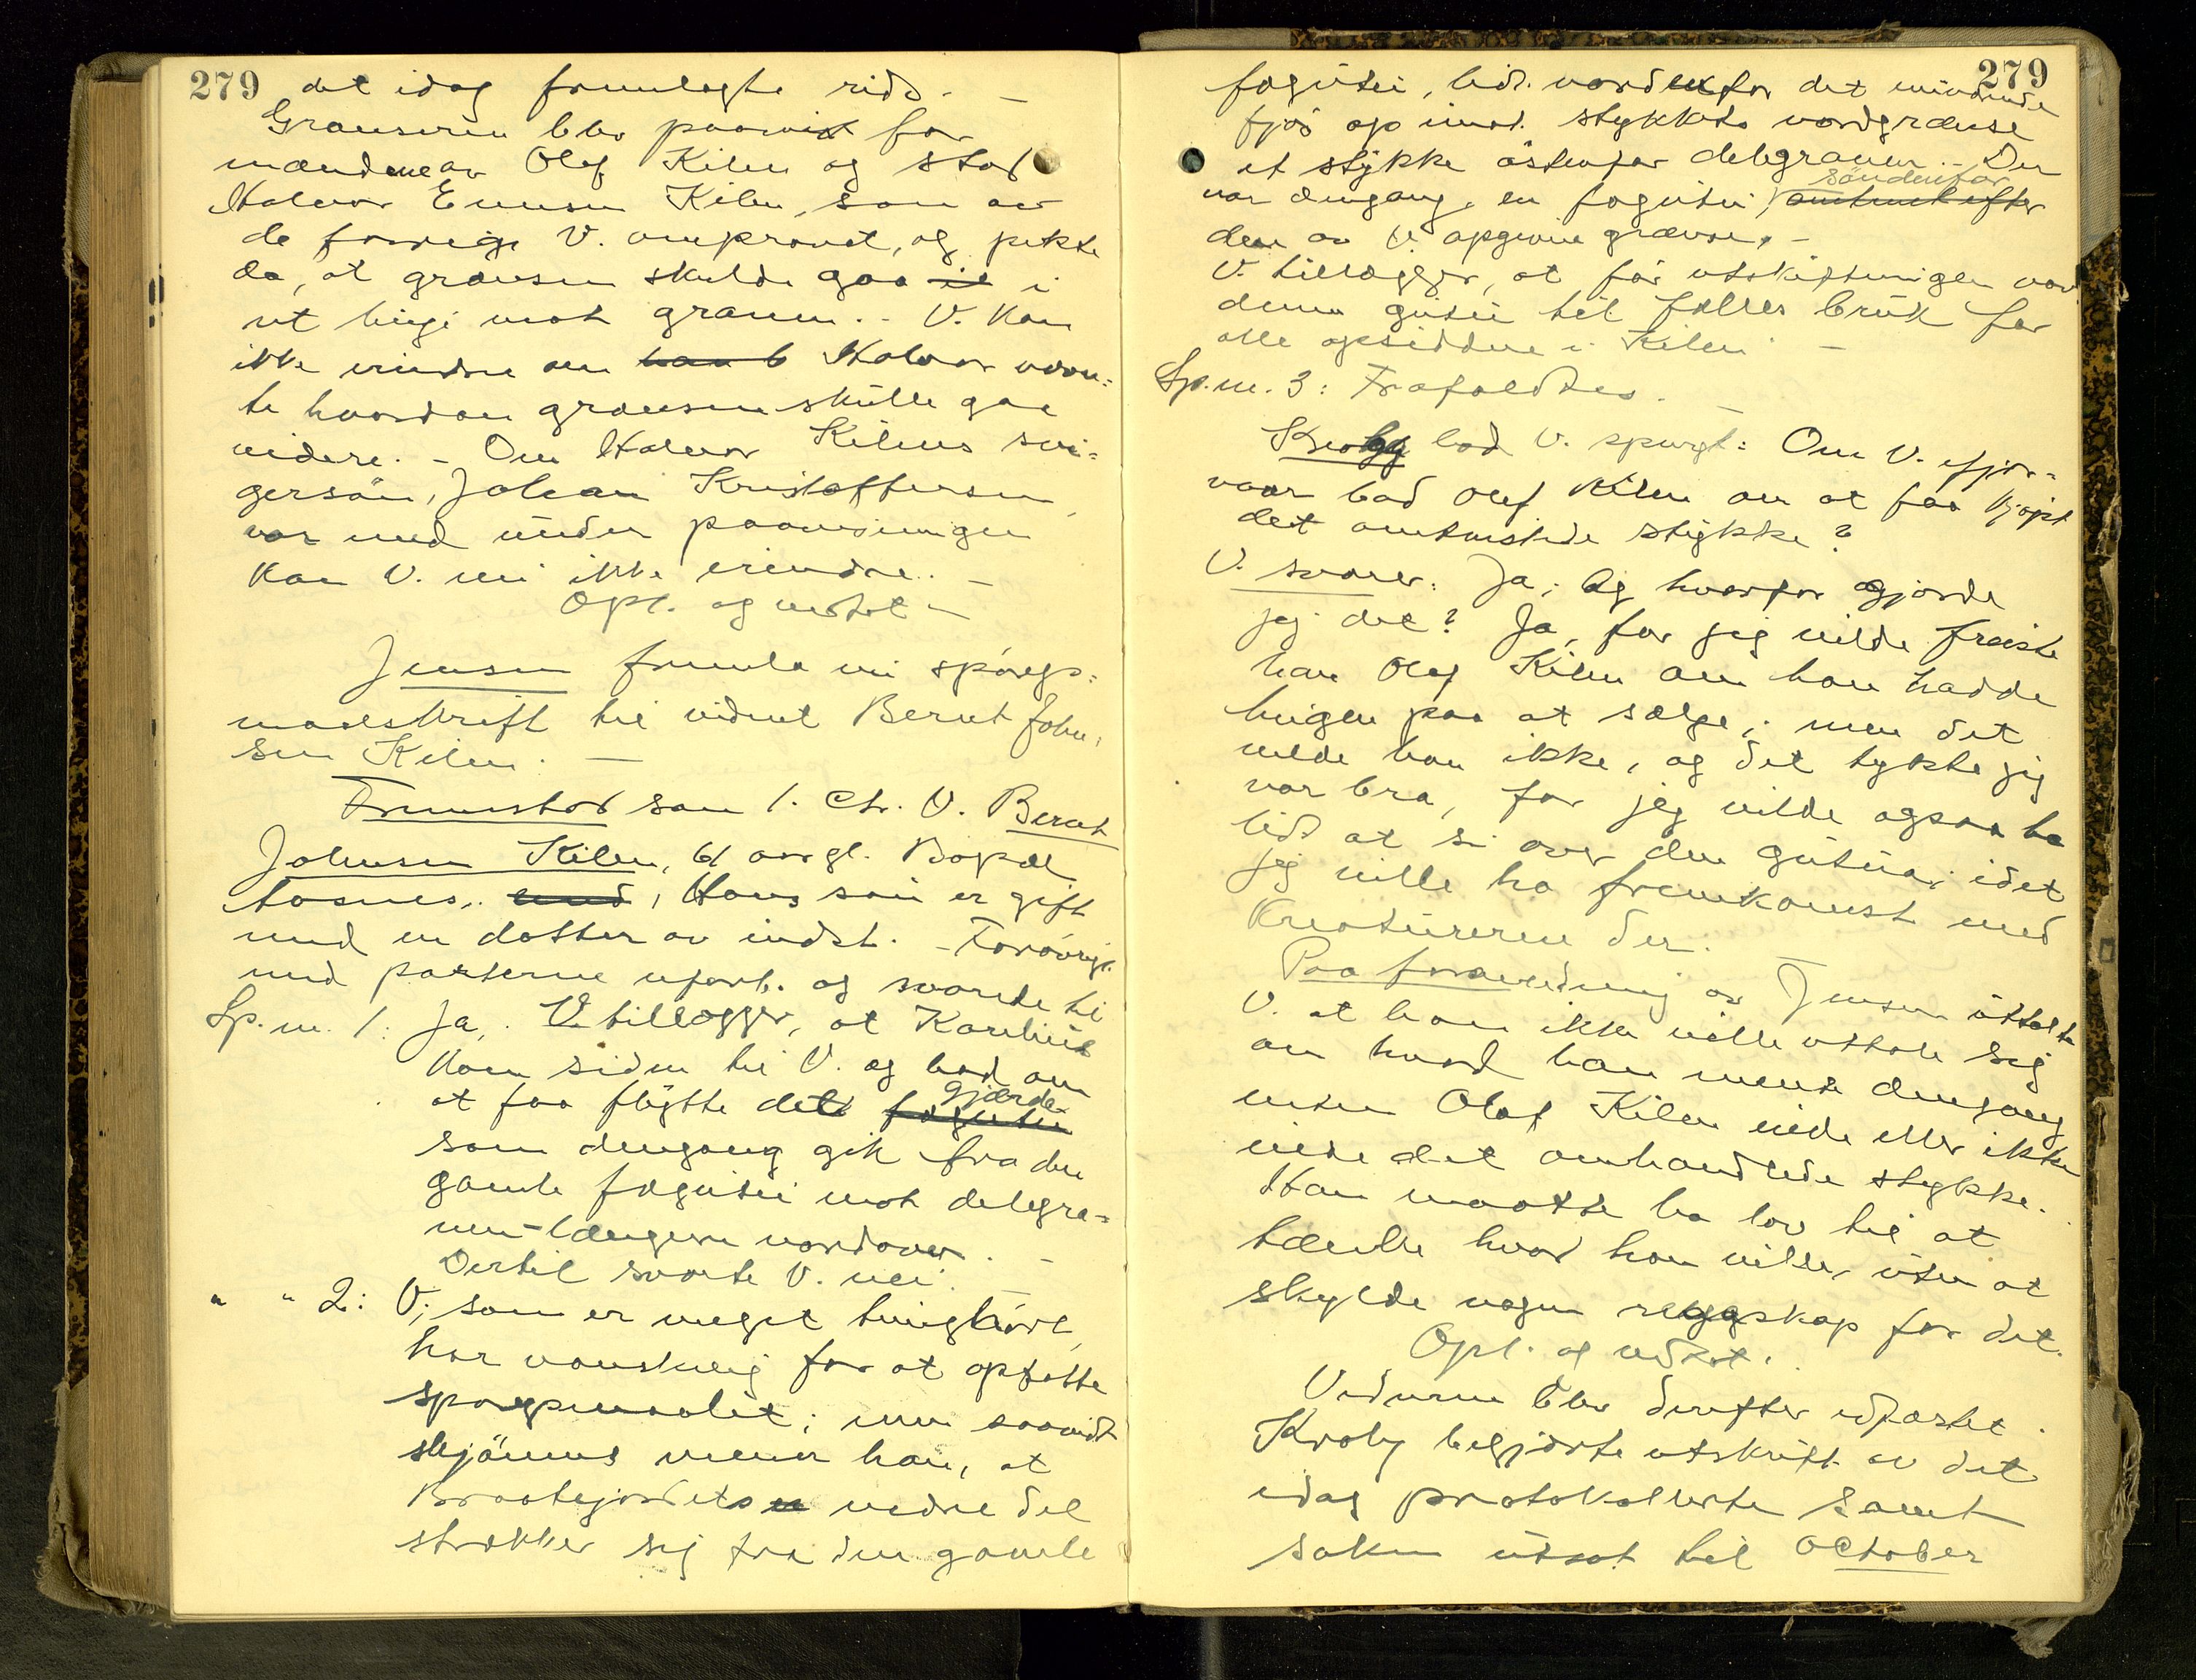 279
det idag fremlagte rids. —
Grænsen blev paavist for
mændene av Olef Kilen og stod
Halvor Evensen Kilen, som av
de forrige V. omprovet, og pekte
da, at grænsen skulde gaa i
ret linje mot granen. - V. kan
ikke erindre om Halvor nævn=
te hvordan grænsen skulle gaa
videre. - Om Halvor Kilens svi=
gersøn, Johan Kristoffersen,
var med under paavisningen
kan V. nu ikke erindre. —
Opl. og vedtat —
Jensen fremla nu spørgs=
maalskrift til vidnet Bernt John=
sen Kilen. —
Fremstod som 1. Ctr. V. Bernt
Johnsen Kilen, 61 aar gl. Bopæl
Aasnes, Hans søn er gift
med en datter av indst. - Forøvrigt
med parterne uforb. og svarede til
Sp.m. 1: Ja. V. tillægger, at Karelius
kom siden til V. og bad om
at faa flytte det gjærde
som dengang gik fra den
gamle fægutu mot delegra=
nen - længere nordover. —
Dertil svarte V. nei. —
" " 2: V., som er meget tunghørt,
har vanskelig for at opfatte
spørgsmaalet; men saavidt
skjønnes mener han, at
Braatejordets nedre del
strækker sig fra den gamle
279
fægutu, lidt nordenfor det nuværende
fjøs op imot stykkets nordgrænse
et stykke østenfor delegranen. - Der
søndenfor
var dengang en fægutu, omtrent efter
den av V. opgivne grænse. —
V. tillægger, at før utskiftningen var
denne gutu til fælles bruk for
alle opsiddere i Kilen. —
Sp.m. 3: Frafaldtes. —
Kroby bad V. spurgt: Om V. ifjor=
vaar bad Olef Kilen om at faa kjøpt
det omtvistede stykke?
V. svarer: Ja; Og hvorfor gjorde
jeg det? Ja, for jeg vilde freiste
han Olef Kilen om han hadde
hugen paa at sælge; men det
vilde han ikke, og det tykte jeg
var bra, for jeg vilde ogsaa ha
lidt at si over den gutua, idet
jeg ville ha fremkomst med
kreaturerne der. —
Paa foranledning av Jensen uttalte
V. at han ikke ville uttale sig
om hvad han mente dengang
enten Olaf Kilen eide eller ikke
eide det omhandlede stykke.
Han maatte ha lov til at
tænke hvad han vilde, uten at
skylde nogen regnskap for det.
Opl. og vedtat.
Vidnerne blev derefter edfæstet.
Kroby begjærte utskrift av det
idag protokollerte samt
saken utsat til October